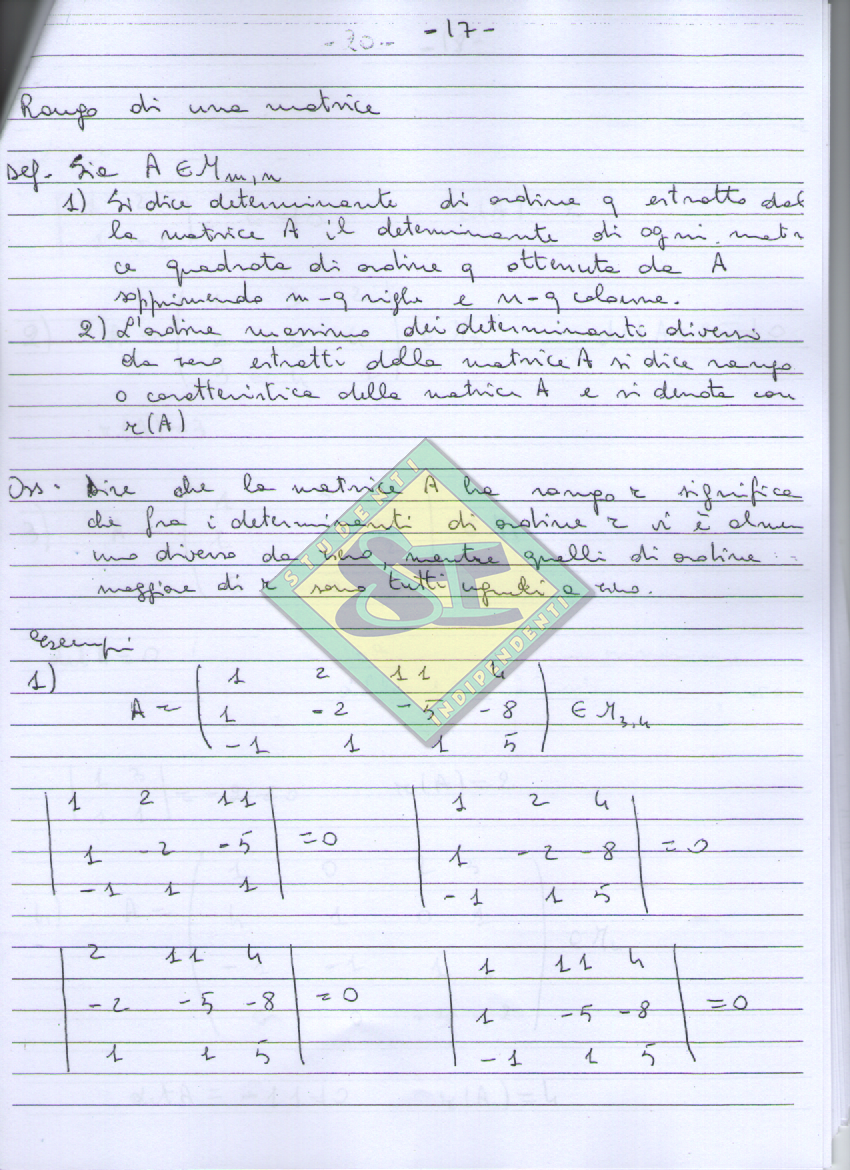 -17-
-20-
Rango di una matrice
Def. Sia A ∈ M m,n
1) Si dice determinante di ordine q estratto dal
la matrice A il determinante di ogni matri
ce quadrata di ordine q ottenuta da A
sopprimendo m-q righe e n-q colonne.
2) L'ordine massimo dei determinanti diversi
da zero estratti dalla matrice A si dice rango
o caratteristica della matrice A e si denota con
r(A)
Oss. Dire che la matrice A ha rango r significa
che fra i determinanti di ordine r vi è almen
uno diverso da zero, mentre quelli di ordine
maggiore di r sono tutti uguali a zero.
STUDENTI
SI
INDIPENDENTI
Esempi
1)
1 2 11 4
A = 1 -2 -5 -8 ∈ M 3,4
-1 1 1 5
1 2 11 1 2 4
1 -2 -5 =0 1 -2 -8 =0
-1 1 1 -1 1 5
2 11 4 1 11 4
-2 -5 -8 =0 1 -5 -8 =0
1 1 5 -1 1 5